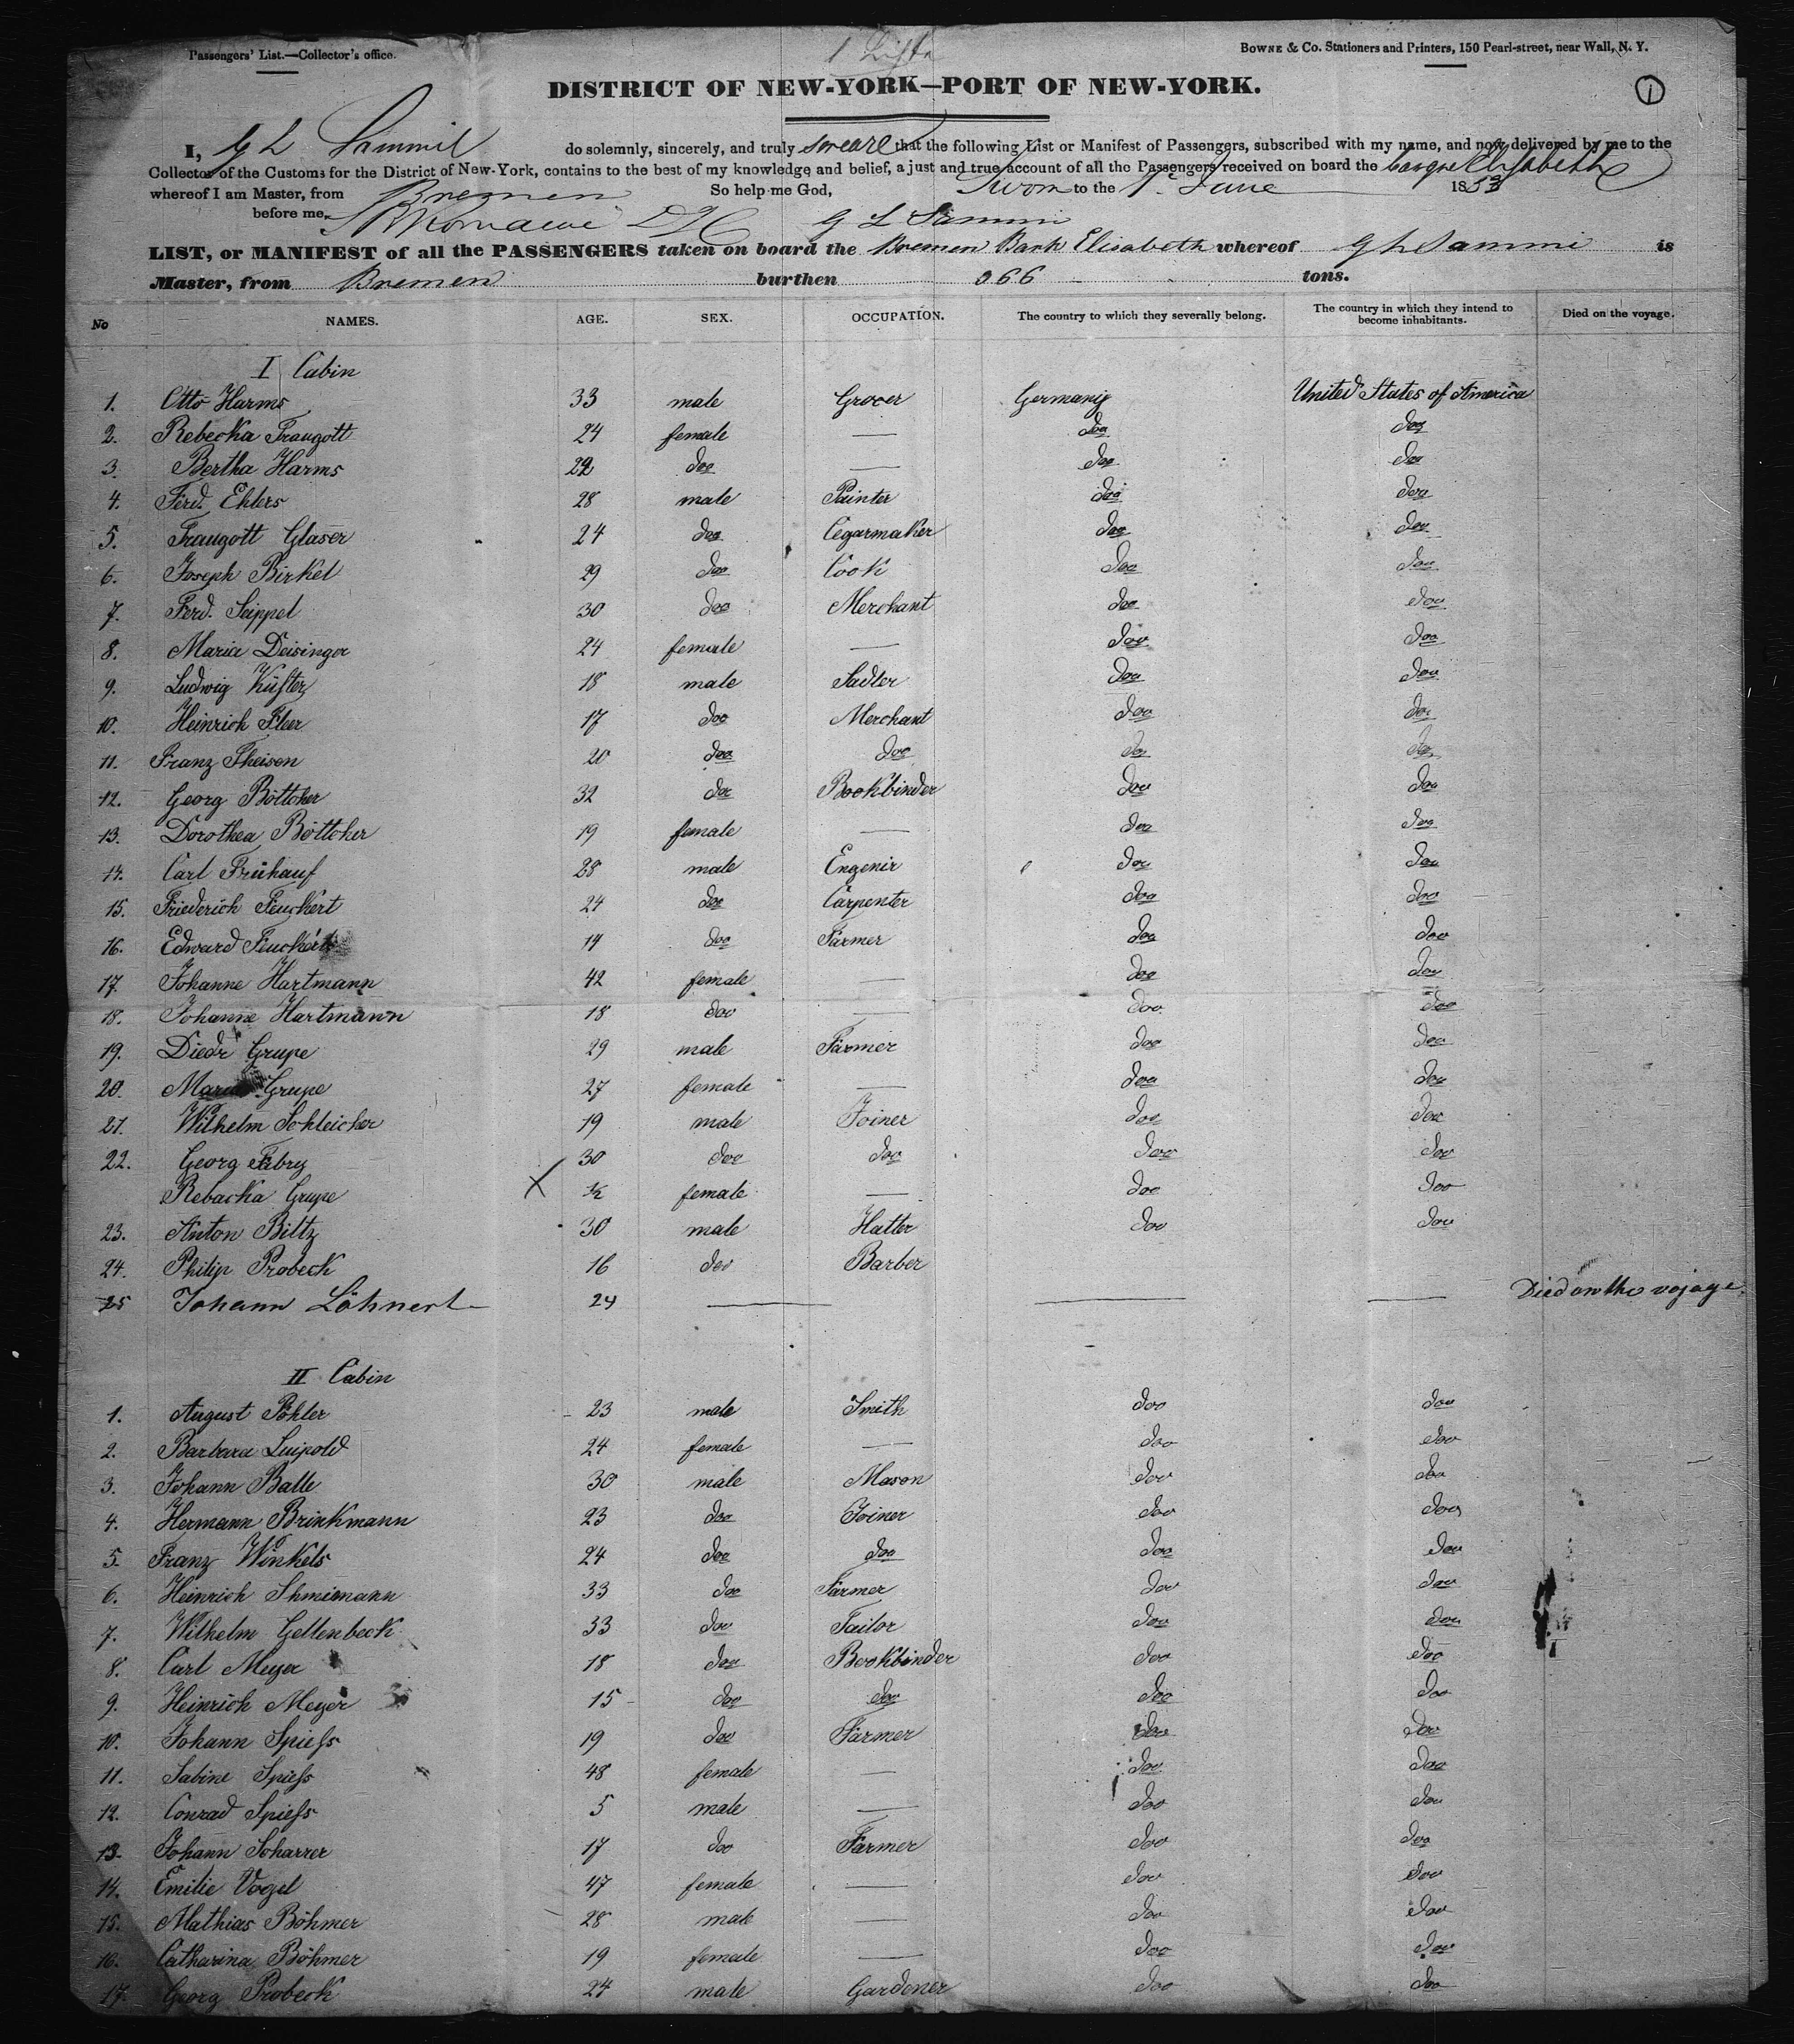 Passengers' List.—Collector's office.
BOWNE & Co. Stationers and Printers, 150 Pearl-street, near Wall, N. Y.
DISTRICT OF NEW-YORK—PORT OF NEW-YORK.
1
I, do solemnly, sincerely, and truly sweare that the following List or Manifest of Passengers, subscribed with my name, and now delivered by me to the
Collector of the Customs for the District of New-York, contains to the best of my knowledge and belief, a just and true account of all the Passengers received on board the barque Elisabeth
whereof I am Master, from Bremen So help me God, Sworn to the 1st June 1853
before me,
LIST, or MANIFEST of all the PASSENGERS taken on board the Bremen Bark Elisabeth whereof is
Master, from Bremen burthen 366 tons.
No NAMES. AGE. SEX. OCCUPATION. The country to which they severally belong. The country in which they intend to become inhabitants. Died on the voyage.
I Cabin
1. Otto Harms 33 male Grocer Germany United States of America
2. Rebecka Traugott 24 female — doo doo
3. Bertha Harms 22 doo — doo doo
4. Ferd. Ehlers 28 male Painter doo doo
5. Traugott Glaser 24 doo Cegarmaker doo doo
6. Joseph Birkel 29 doo Cook doo doo
7. Ferd. Seippel 30 doo Merchant doo doo
8. Maria Deisinger 24 female — doo doo
9. Ludwig Küster 18 male Sadler doo doo
10. Heinrich Fleer 17 doo Merchant doo doo
11. Franz Theisen 20 doo doo do do
12. Georg Böttcher 32 doo Bookbinder doo doo
13. Dorothea Böttcher 19 female — doo doo
14. Carl Frühauf 28 male Engenir doo doo
15. Friederich Feuckert 24 doo Carpenter doo doo
16. Edward Feuckert 14 doo Farmer doo doo
17. Johanne Hartmann 42 female — doo doo
18. Johanne Hartmann 18 doo — doo doo
19. Diedr Grupe 29 male Farmer doo doo
20. Maria Grupe 27 female — doo doo
21. Wilhelm Schleicher 19 male Joiner doo doo
22. Georg Fabry 30 doo doo doo doo
Rebacka Grupe X ½ female — doo doo
23. Anton Biltz 30 male Hatter doo doo
24. Philip Probeck 16 doo Barber
25 Johann Löhnert 24 — — — Died on the vojage.
II Cabin
1. August Pöhler 23 male Smith doo doo
2. Barbara Luipold 24 female — doo doo
3. Johann Balle 30 male Mason doo doo
4. Hermann Brinkmann 23 doo Joiner doo doo
5. Franz Winkels 24 doo doo doo doo
6. Heinrich Shmiemann 33 doo Farmer doo doo
7. Wilhelm Gellenbeck 33 doo Tailor doo doo
8. Carl Meyer 18 doo Bookbinder doo doo
9. Heinrich Meyer 15 doo doo doo doo
10. Johann Spiess 19 doo Farmer doo doo
11. Sabine Spiess 48 female — doo doo
12. Conrad Spiess 5 male — doo doo
13. Johann Scharrer 17 doo Farmer doo doo
14. Emilie Vogel 47 female — doo doo
15. Mathias Böhmer 28 male — doo doo
16. Catharina Böhmer 19 female — doo doo
17. Georg Probeck 24 male Gardener doo doo